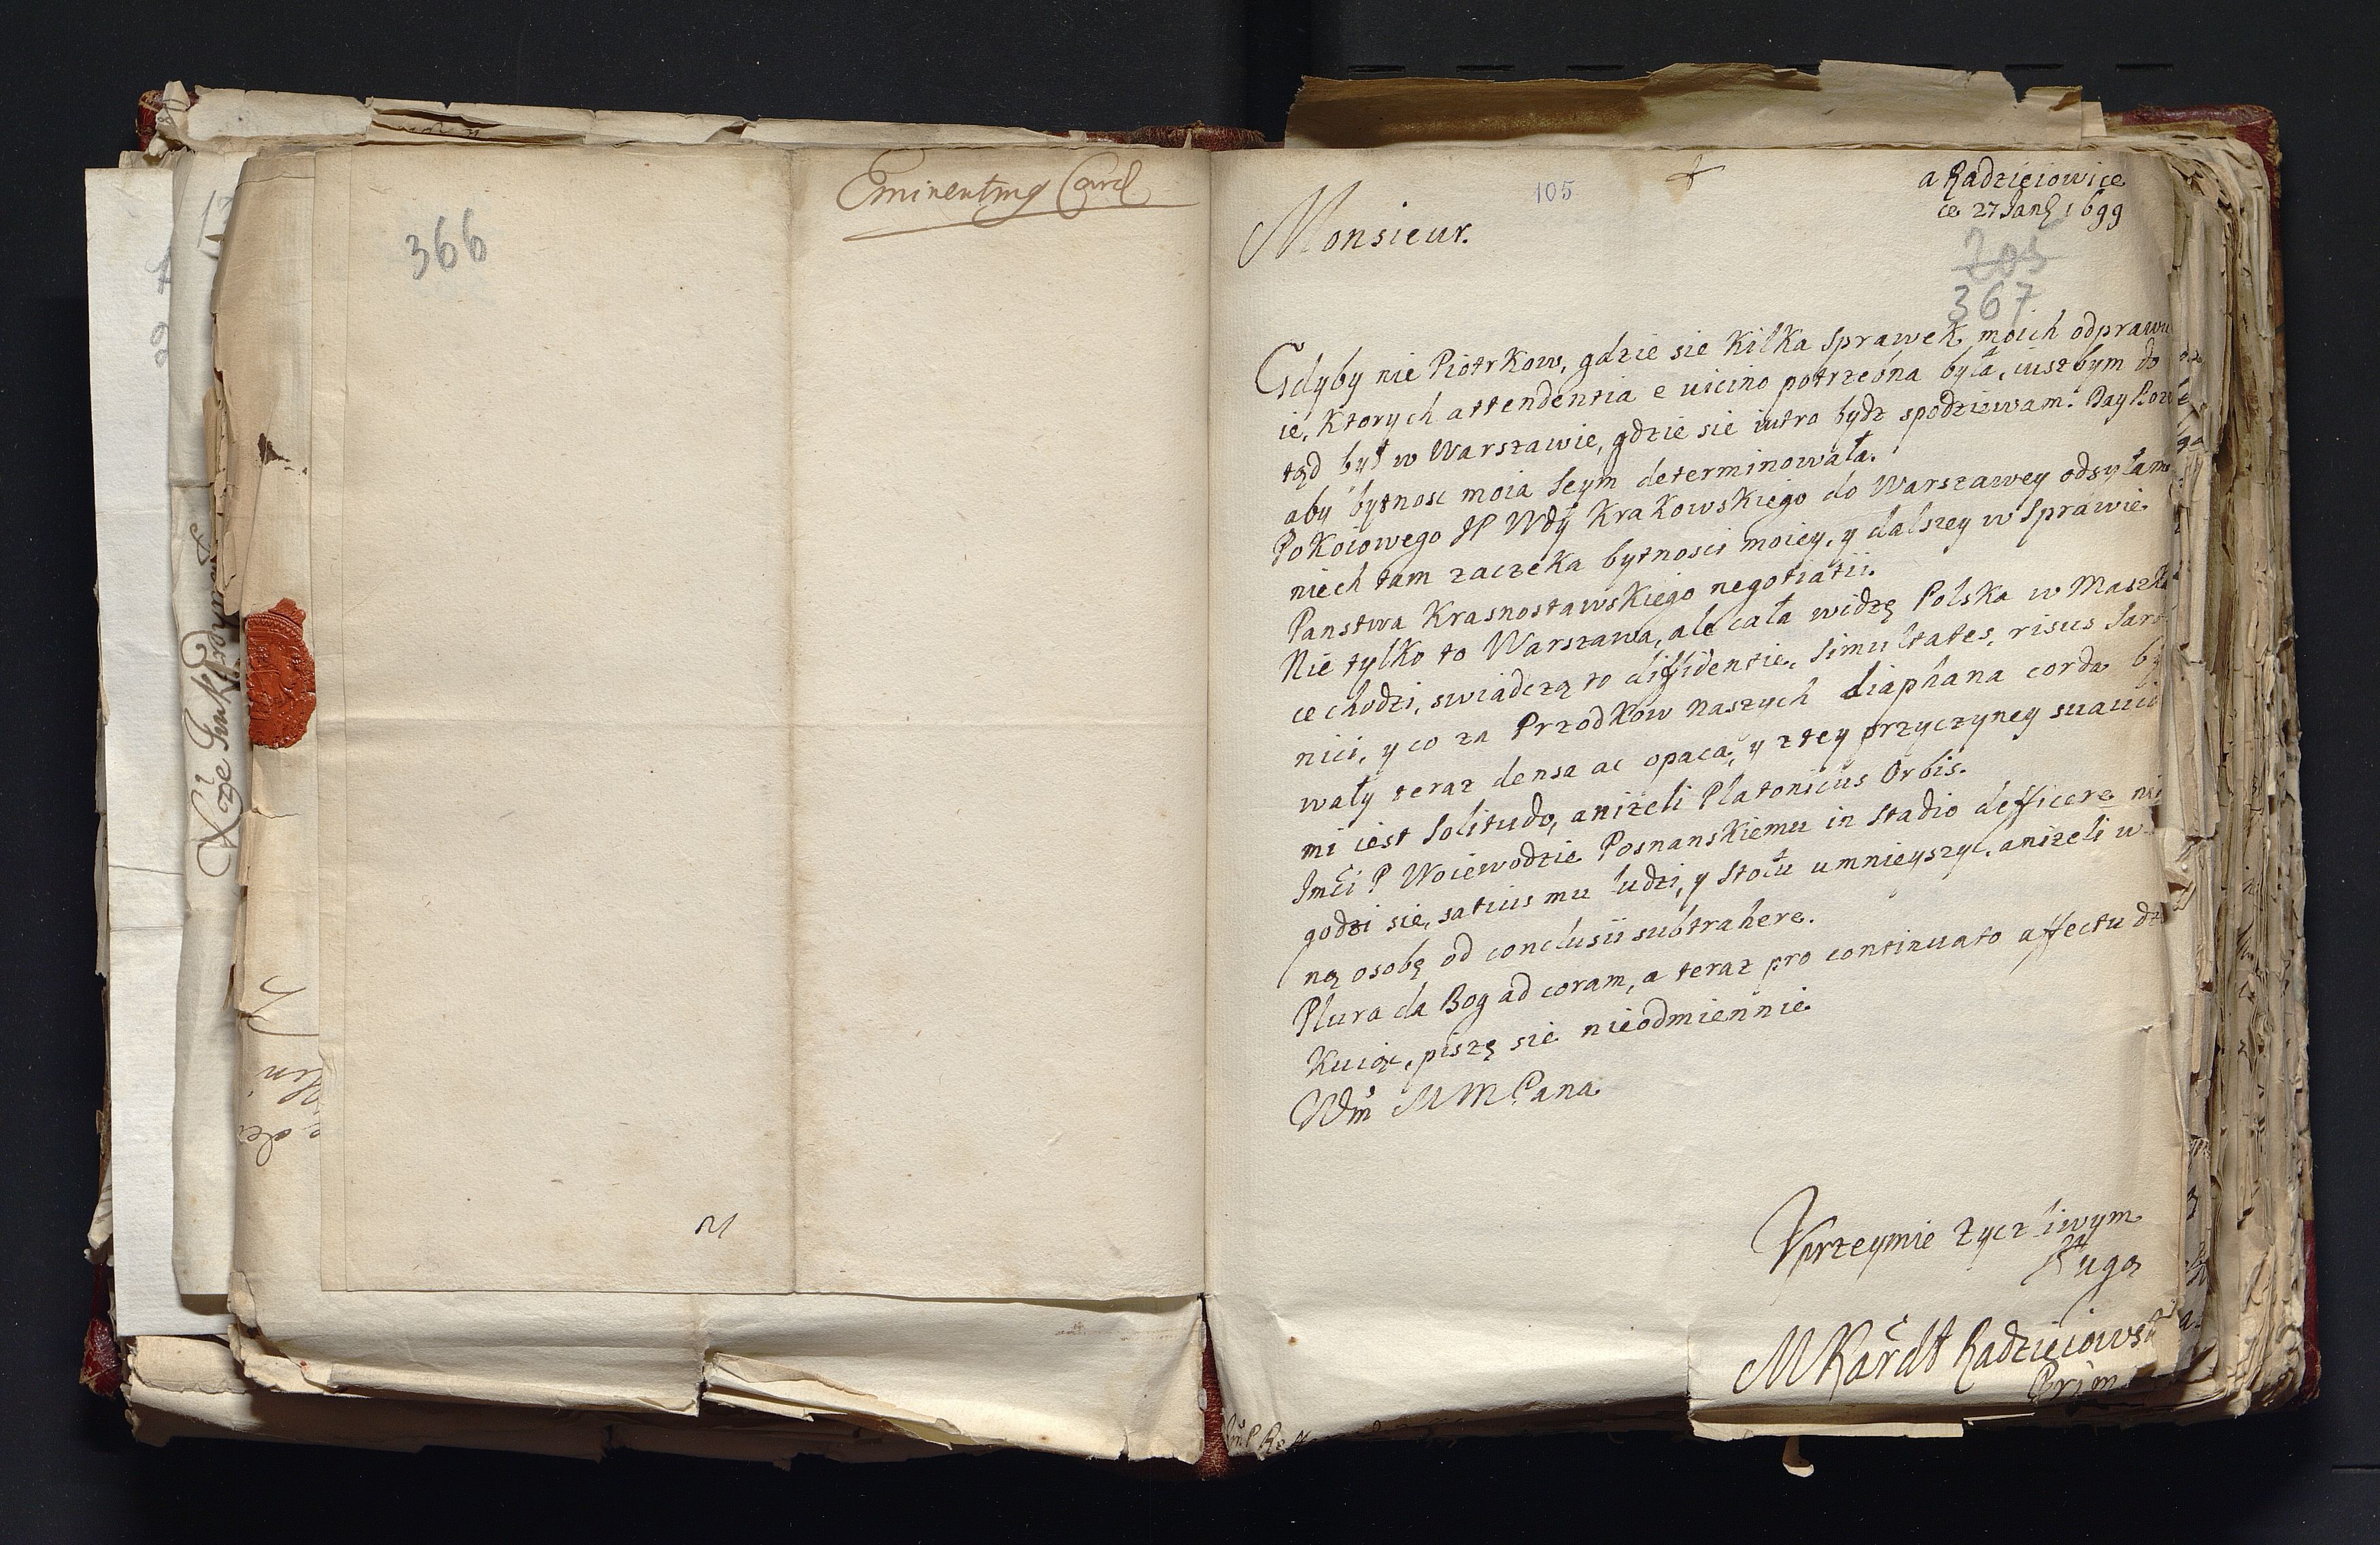 366
Eminentmg Card
105
a Radzieiowice
ce 27 Janȝ 1699
Monsieur.
205
367
Gdyby nie Piotrkow, gdzie sie kilka Sprawek moich odprawu
ie, Ktorych attendentia e uicino potrzebna była, iusz bym do
tąd był w Warszawie, gdzie sie iutro bydz spodziewam. Day Boze
aby bytnosc moia Seym determinowała.
Pokoiowego JP Wdy Krakowskiego do Warszawey odsyłam
niech tam zaczeka bytnosci moiey, y dalszey w Sprawie
Panstwa Krasnostawskiego negotiatii.
Nie tylko to Warszawa, ale cała widzę Polska w Maszka
ce chodzi, swiadczą to diffidentie, Simultates, risus Sar
nici, y co za Przodkow naszych diaphana corda by
wały teraz densa ac opaca, y z tey przyczyney suauio
mi iest Solitudo, anizeli Platonicus Orbis.
Jmći P Woiewodzie Posnanskiemu in stadio defficere nie
godzi sie, satius mu ludzi, y Stołu umnieyszyc, anizeli w
ną osobę od conclusii subtrahere.
Plura da Bog ad coram, a teraz pro continuato affectu dzię
kuiąc, piszę sie nieodmiennie
Wm MMPana
Vprzeymie zyczliwym
Sługą
M Kardł Radzieiowski
Prim